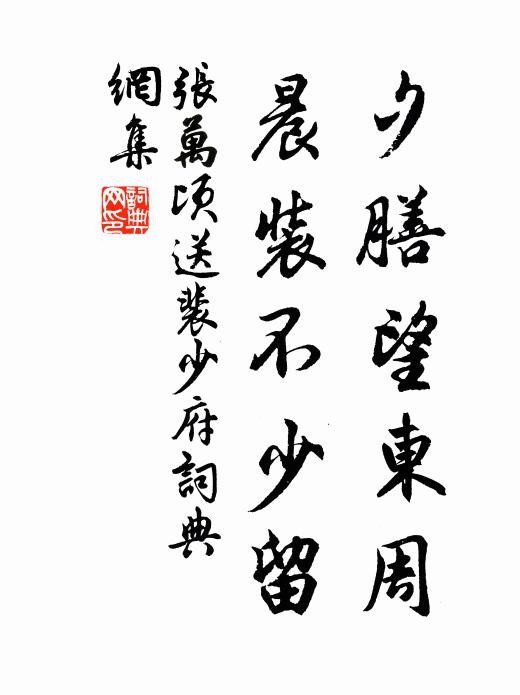 夕膳望東周
晨裝不少留
張萬頃送裴少府詞典
網集
詞典
网印